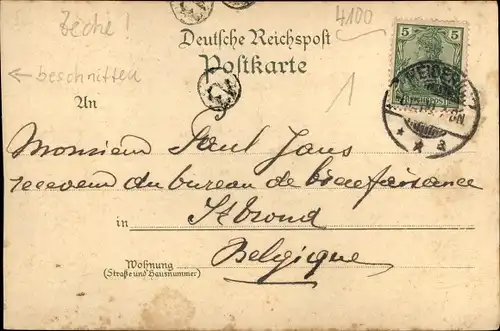 Zeche!
4100
Deutsche Reichspost
5 5
← beschnitten
Postkarte
1
An
Monsieur Paul Jans
receveur du bureau de bienfaisance
in St Trond
Belgique
Wohnung
(Straße und Hausnummer)